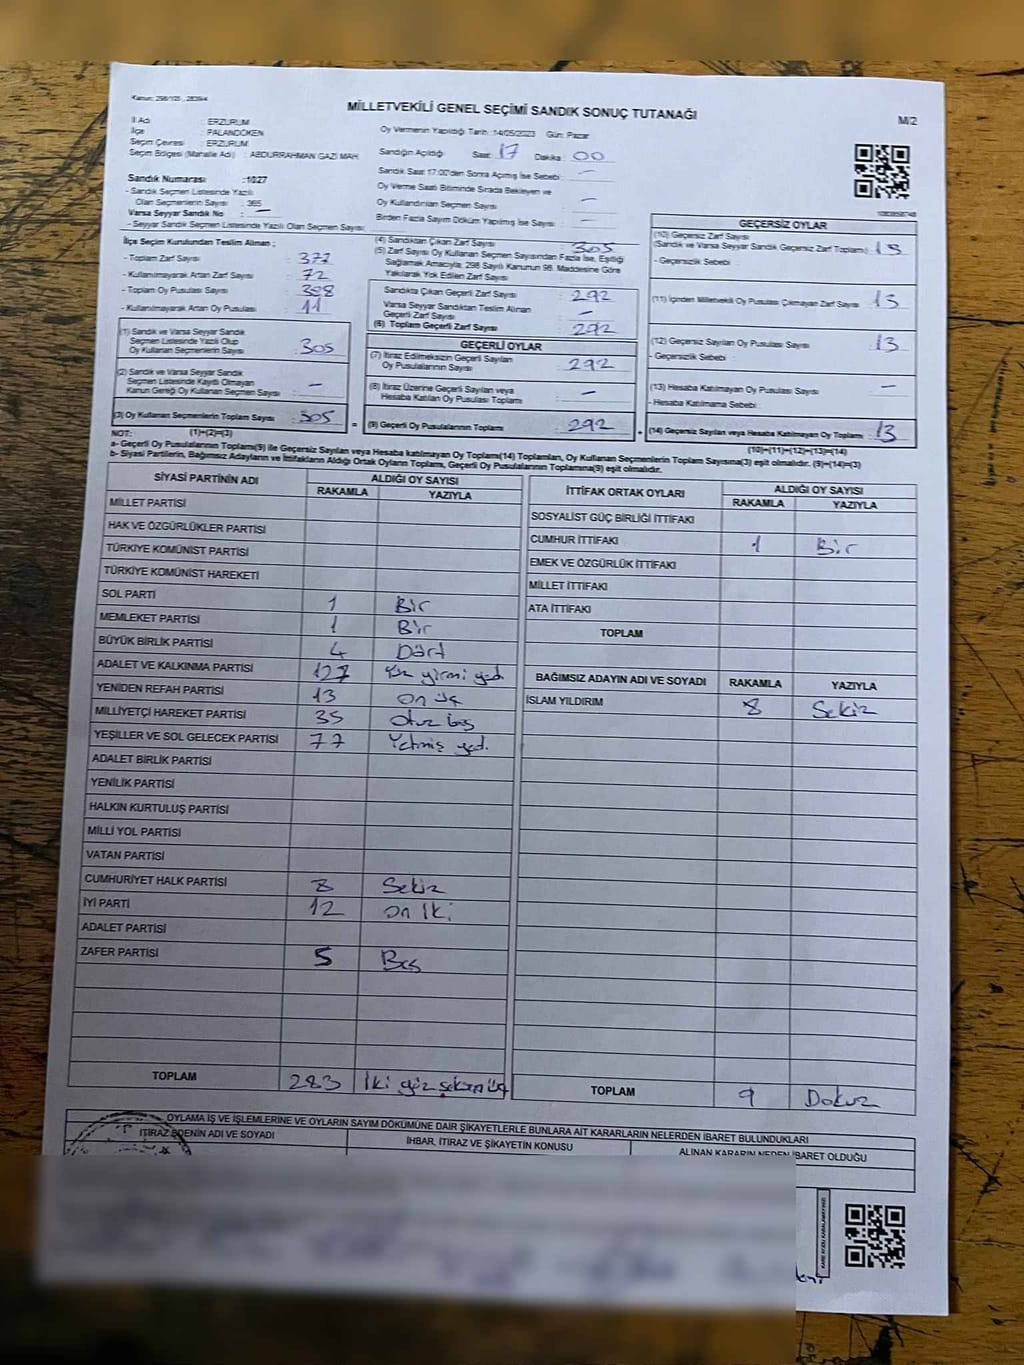 Kanun: 298/105, 2839/4
MİLLETVEKİLİ GENEL SEÇİMİ SANDIK SONUÇ TUTANAĞI
M/2
İl Adı : ERZURUM
İlçe : PALANDÖKEN
Seçim Çevresi : ERZURUM
Seçim Bölgesi (Mahalle Adı) : ABDURRAHMAN GAZİ MAH.
Sandık Numarası :1027
- Sandık Seçmen Listesinde Yazılı
Olan Seçmenlerin Sayısı : 365
Varsa Seyyar Sandık No : —
- Seyyar Sandık Seçmen Listesinde Yazılı Olan Seçmen Sayısı:
Oy Vermenin Yapıldığı Tarih :14/05/2023 Gün: Pazar
Sandığın Açıldığı Saat: 17 Dakika : 00
Sandık Saat 17:00'den Sonra Açılmış İse Sebebi : —
Oy Verme Saati Bitiminde Sırada Bekleyen ve
Oy Kullandırılan Seçmen Sayısı : —
Birden Fazla Sayım Döküm Yapılmış İse Sayısı : —
İlçe Seçim Kurulundan Teslim Alınan ;
- Toplam Zarf Sayısı : 377
- Kullanılmayarak Artan Zarf Sayısı : 72
- Toplam Oy Pusulası Sayısı : 308
- Kullanılmayarak Artan Oy Pusulası : 11
(1) Sandık ve Varsa Seyyar Sandık
Seçmen Listesinde Yazılı Olup
Oy Kullanan Seçmenlerin Sayısı : 305
(2) Sandık ve Varsa Seyyar Sandık
Seçmen Listesinde Kayıtlı Olmayan
Kanun Gereği Oy Kullanan Seçmen Sayısı : —
(3) Oy Kullanan Seçmenlerin Toplam Sayısı : 305
(4) Sandıktan Çıkan Zarf Sayısı : 305
(5) Zarf Sayısı Oy Kullanan Seçmen Sayısından Fazla İse, Eşitliği
Sağlamak Amacıyla; 298 Sayılı Kanunun 98. Maddesine Göre
Yakılarak Yok Edilen Zarf Sayısı :
Sandıkta Çıkan Geçerli Zarf Sayısı : 292
Varsa Seyyar Sandıktan Teslim Alınan
Geçerli Zarf Sayısı : —
(6) Toplam Geçerli Zarf Sayısı : 292
GEÇERLİ OYLAR
(7) İtiraz Edilmeksizin Geçerli Sayılan
Oy Pusulalarının Sayısı : 292
(8) İtiraz Üzerine Geçerli Sayılan veya
Hesaba Katılan Oy Pusulası Toplamı : —
= (9) Geçerli Oy Pusulalarının Toplamı : 292
GEÇERSİZ OYLAR
(10) Geçersiz Zarf Sayısı
(Sandık ve Varsa Seyyar Sandık Geçersiz Zarf Toplamı) : 13
- Geçersizlik Sebebi :
(11) İçinden Milletvekili Oy Pusulası Çıkmayan Zarf Sayısı : 13
(12) Geçersiz Sayılan Oy Pusulası Sayısı : 13
- Geçersizlik Sebebi :
(13) Hesaba Katılmayan Oy Pusulası Sayısı : —
- Hesaba Katılmama Sebebi :
+ (14) Geçersiz Sayılan veya Hesaba Katılmayan Oy Toplamı : 13
NOT: (1)+(2)=(3) (10)+(11)+(12)+(13)=(14)
a- Geçerli Oy Pusulalarının Toplamı(9) ile Geçersiz Sayılan veya Hesaba katılmayan Oy Toplamı(14) Toplamları, Oy Kullanan Seçmenlerin Toplam Sayısına(3) eşit olmalıdır. (9)+(14)=(3)
b- Siyasi Partilerin, Bağımsız Adayların ve İttifakların Aldığı Ortak Oyların Toplamı, Geçerli Oy Pusulalarının Toplamına(9) eşit olmalıdır.
SİYASİ PARTİNİN ADI ALDIĞI OY SAYISI
RAKAMLA YAZIYLA
MİLLET PARTİSİ
HAK VE ÖZGÜRLÜKLER PARTİSİ
TÜRKİYE KOMÜNİST PARTİSİ
TÜRKİYE KOMÜNİST HAREKETİ
SOL PARTİ 1 Bir
MEMLEKET PARTİSİ 1 Bir
BÜYÜK BİRLİK PARTİSİ 4 Dört
ADALET VE KALKINMA PARTİSİ 127 Yüz yirmi yed.
YENİDEN REFAH PARTİSİ 13 On üç
MİLLİYETÇİ HAREKET PARTİSİ 35 Otuz beş
YEŞİLLER VE SOL GELECEK PARTİSİ 77 Yetmiş yed.
ADALET BİRLİK PARTİSİ
YENİLİK PARTİSİ
HALKIN KURTULUŞ PARTİSİ
MİLLİ YOL PARTİSİ
VATAN PARTİSİ
CUMHURİYET HALK PARTİSİ 8 Sekiz
İYİ PARTİ 12 On iki
ADALET PARTİSİ
ZAFER PARTİSİ 5 Beş
TOPLAM 283 İki yüz seksen üç
İTTİFAK ORTAK OYLARI ALDIĞI OY SAYISI
RAKAMLA YAZIYLA
SOSYALİST GÜÇ BİRLİĞİ İTTİFAKI
CUMHUR İTTİFAKI 1 Bir
EMEK VE ÖZGÜRLÜK İTTİFAKI
MİLLET İTTİFAKI
ATA İTTİFAKI
TOPLAM
BAĞIMSIZ ADAYIN ADI VE SOYADI RAKAMLA YAZIYLA
İSLAM YILDIRIM 8 Sekiz
TOPLAM 9 Dokuz
OYLAMA İŞ VE İŞLEMLERİNE VE OYLARIN SAYIM DÖKÜMÜNE DAİR ŞİKAYETLERLE BUNLARA AİT KARARLARIN NELERDEN İBARET BULUNDUKLARI
İTİRAZ EDENİN ADI VE SOYADI İHBAR, İTİRAZ VE ŞİKAYETİN KONUSU ALINAN KARARIN NEDEN İBARET OLDUĞU